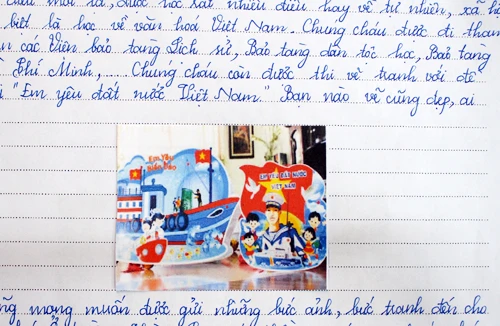 mới là, được học rất nhiều điều hay về tự nhiên, xã hộ
biệt là học về văn hoá Việt Nam. Chúng cháu được đi tham
các Viện bảo tàng Lịch sử, Bảo tàng dân tộc học, Bảo tàng
Chí Minh,.... Chúng cháu còn được thi vẽ tranh với đề
"Em yêu đất nước Việt Nam." Bạn nào vẽ cũng đẹp, ai
Em yêu
biển đảo
EM YÊU ĐẤT NƯỚC
VIỆT NAM
mong muốn được gửi những bức ảnh, bức tranh đến cho